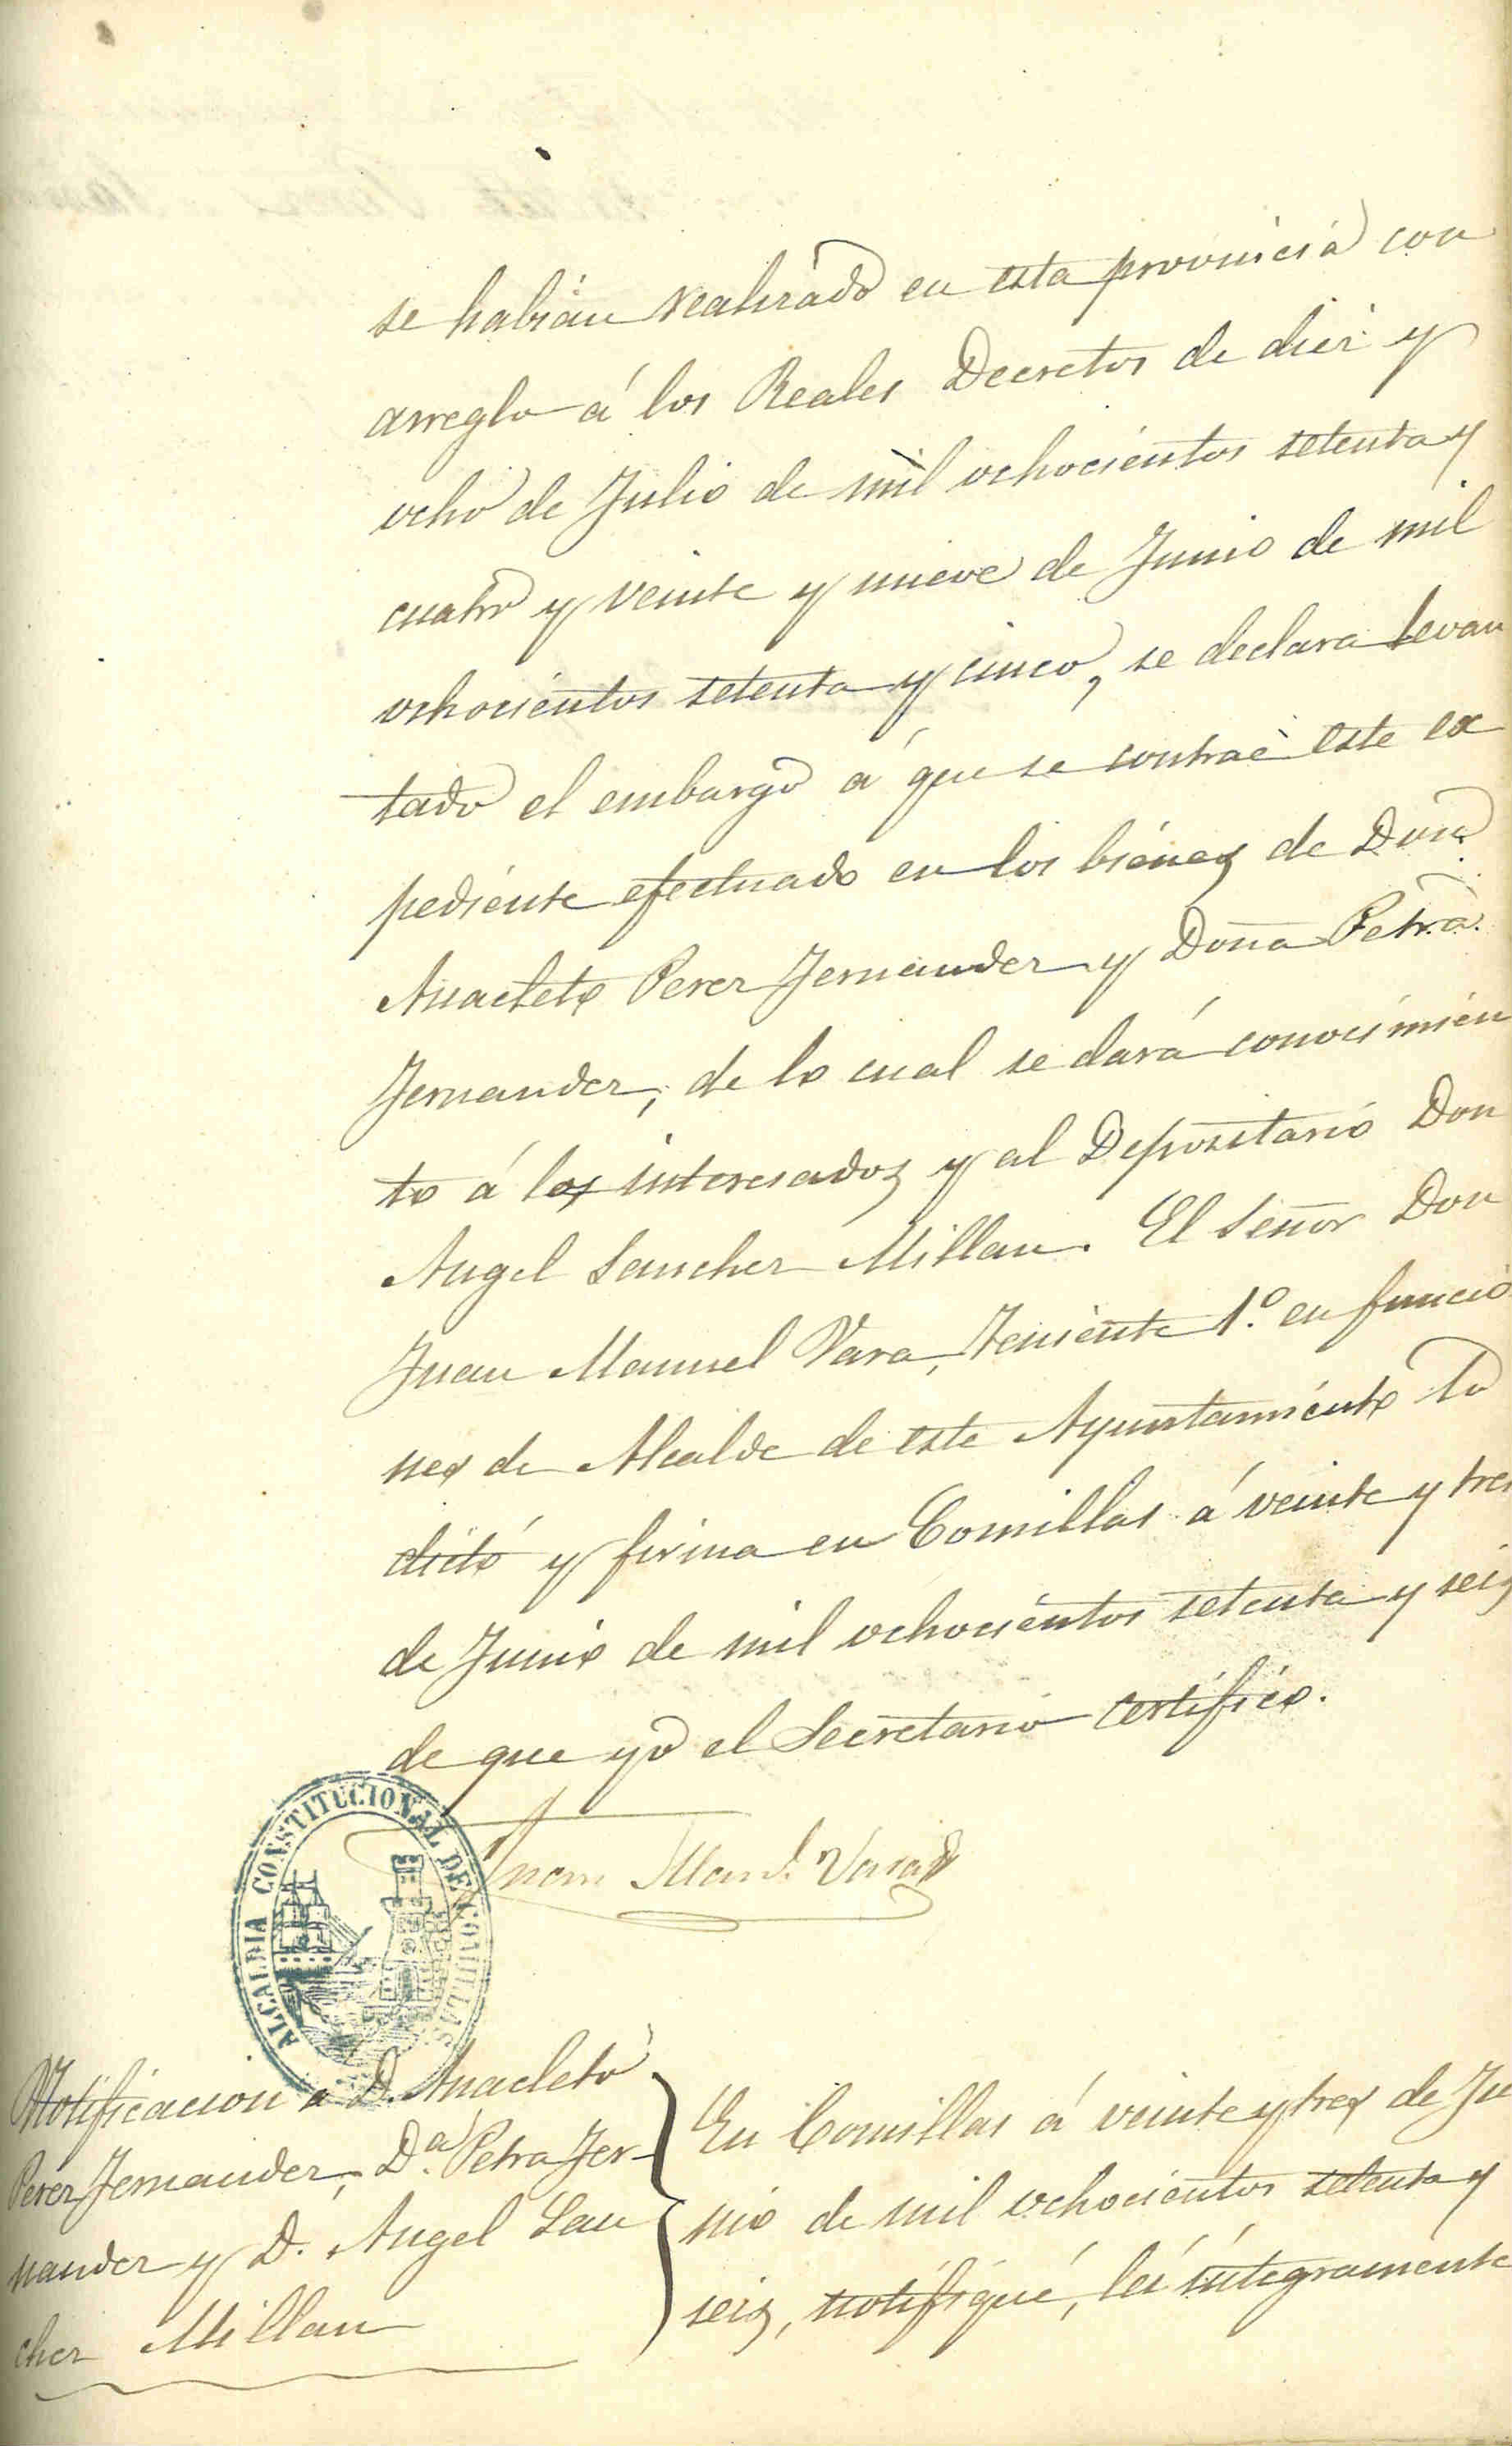 se habian realizado en esta provincia con
arreglo á los Reales Decretos de diez y
ocho de Julio de mil ochocientos setenta y
cuatro y veinte y nueve de Junio de mil
ochocientos setenta y cinco, se declara levan
tado el embargo á que se contrae este ex
pediente efectuado en los bienes de Don
Anacleto Perez Fernandez y Doña Petra
Fernandez, de lo cual se dará conocimien
to á los interesados y al Depositario Don
Angel Sanchez Millan. El Señor Don
Juan Manuel Vara, Teniente 1.º en funcio
nes de Alcalde de este Ayuntamiento lo
dictó y firma en Comillas á veinte y tres
de Junio de mil ochocientos setenta y seis
de que yo el Secretario certifico.
Juan Man.l Vara
ALCALDIA CONSTITUCIONAL DE COMILLAS
Notificacion a D. Anacleto
Perez Fernandez, D.ª Petra Fer-
nandez y D. Angel San
chez Millan
En Comillas á veinte y tres de Ju
nio de mil ochocientos setenta y
seis, notifiqué, leí íntegramente